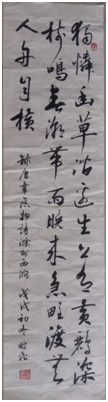 獨憐幽草澗邊生上有黃鸝深
樹鳴春潮帶雨晚來急野渡無
人舟自橫
錄唐韋應物詩滁州西澗 戊戌初冬